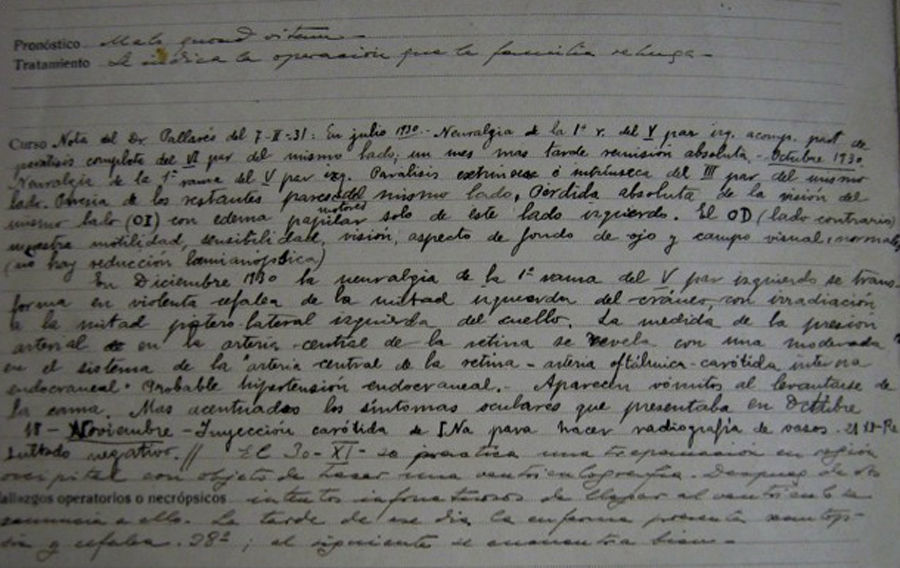 Pronóstico Malo quoad vitam
Tratamiento Se indica la operación que la familia rehusa
Curso Nota del Dr. Pallarés del 7-II-31: En julio 1930.- Neuralgia de la 1ª r. del V par izq. acomp. de
parálisis completa del VI par del mismo lado; un mes mas tarde remisión absoluta.- Octubre 1930.
Neuralgia de la 1ª rama del V par izq. Parálisis extrinseca é intrinseca del III par del mismo
lado. Paresia de los restantes pares motores del mismo lado. Pérdida absoluta de la visión del
mismo lado (OI) con edema papilar solo de este lado izquierdo. El OD (lado contrario)
muestra motilidad, sensibilidad, visión, aspecto de fondo de ojo y campo visual, normales
(no hay reducción hemianóptica)
En Diciembre 1930 la neuralgia de la 1ª rama del V par izquierdo se trans-
forma en violenta cefalea de la mitad izquierda del cráneo, con irradiación
a la mitad póstero-lateral izquierda del cuello. La medida de la presión
arterial en la arteria central de la retina se revela con una moderada
en el sistema de la "arteria central de la retina - arteria oftálmica-carótida interna
endocraneal. Probable hipertensión endocraneal.- Aparecen vómitos al levantarse de
la cama. Mas acentuados los síntomas oculares que presentaba en Octubre
18 - Noviembre - Inyección carótida de INa para hacer radiografía de vasos. Re
sultado negativo. // El 30-XI- se practica una trepanación en región
occipital con objeto de hacer una ventriculografía. Despues de dos
allazgos operatorios o necrópsicos intentos infructuosos de llegar al ventriculo se
renuncia a ello. La tarde de ese dia la enferma presenta
y cefalea. 38º; al siguiente se encuentra bien-